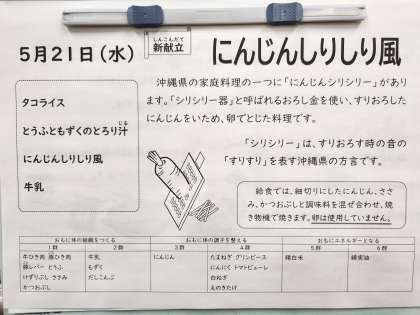 5月21日(水)
しんこんだて
新献立
にんじんしりしり風
タコライス
とうふともずくのとろり汁
じる
にんじんしりしり風
牛乳
沖縄県の家庭料理の一つに「にんじんシリシリー」があり
ます。「シリシリー器」と呼ばれるおろし金を使い、すりおろした
にんじんをいため、卵でとじた料理です。
「シリシリー」は、すりおろす時の音の
「すりすり」を表す沖縄県の方言です。
給食では、細切りにしたにんじん、ささ
み、かつおぶしと調味料を混ぜ合わせ、焼
き物機で焼きます。卵は使用していません。
おもに体の組織をつくる
おもに体の調子を整える
おもにエネルギーとなる
1群 2群 3群 4群 5群 6群
牛ひき肉 豚ひき肉
豚レバー とうふ
けずりぶし ささみ
かつおぶし
牛乳
もずく
だしこんぶ
にんじん
たまねぎ グリンピース
にんにく トマトピューレ
白ねぎ
えのきたけ
精白米
綿実油